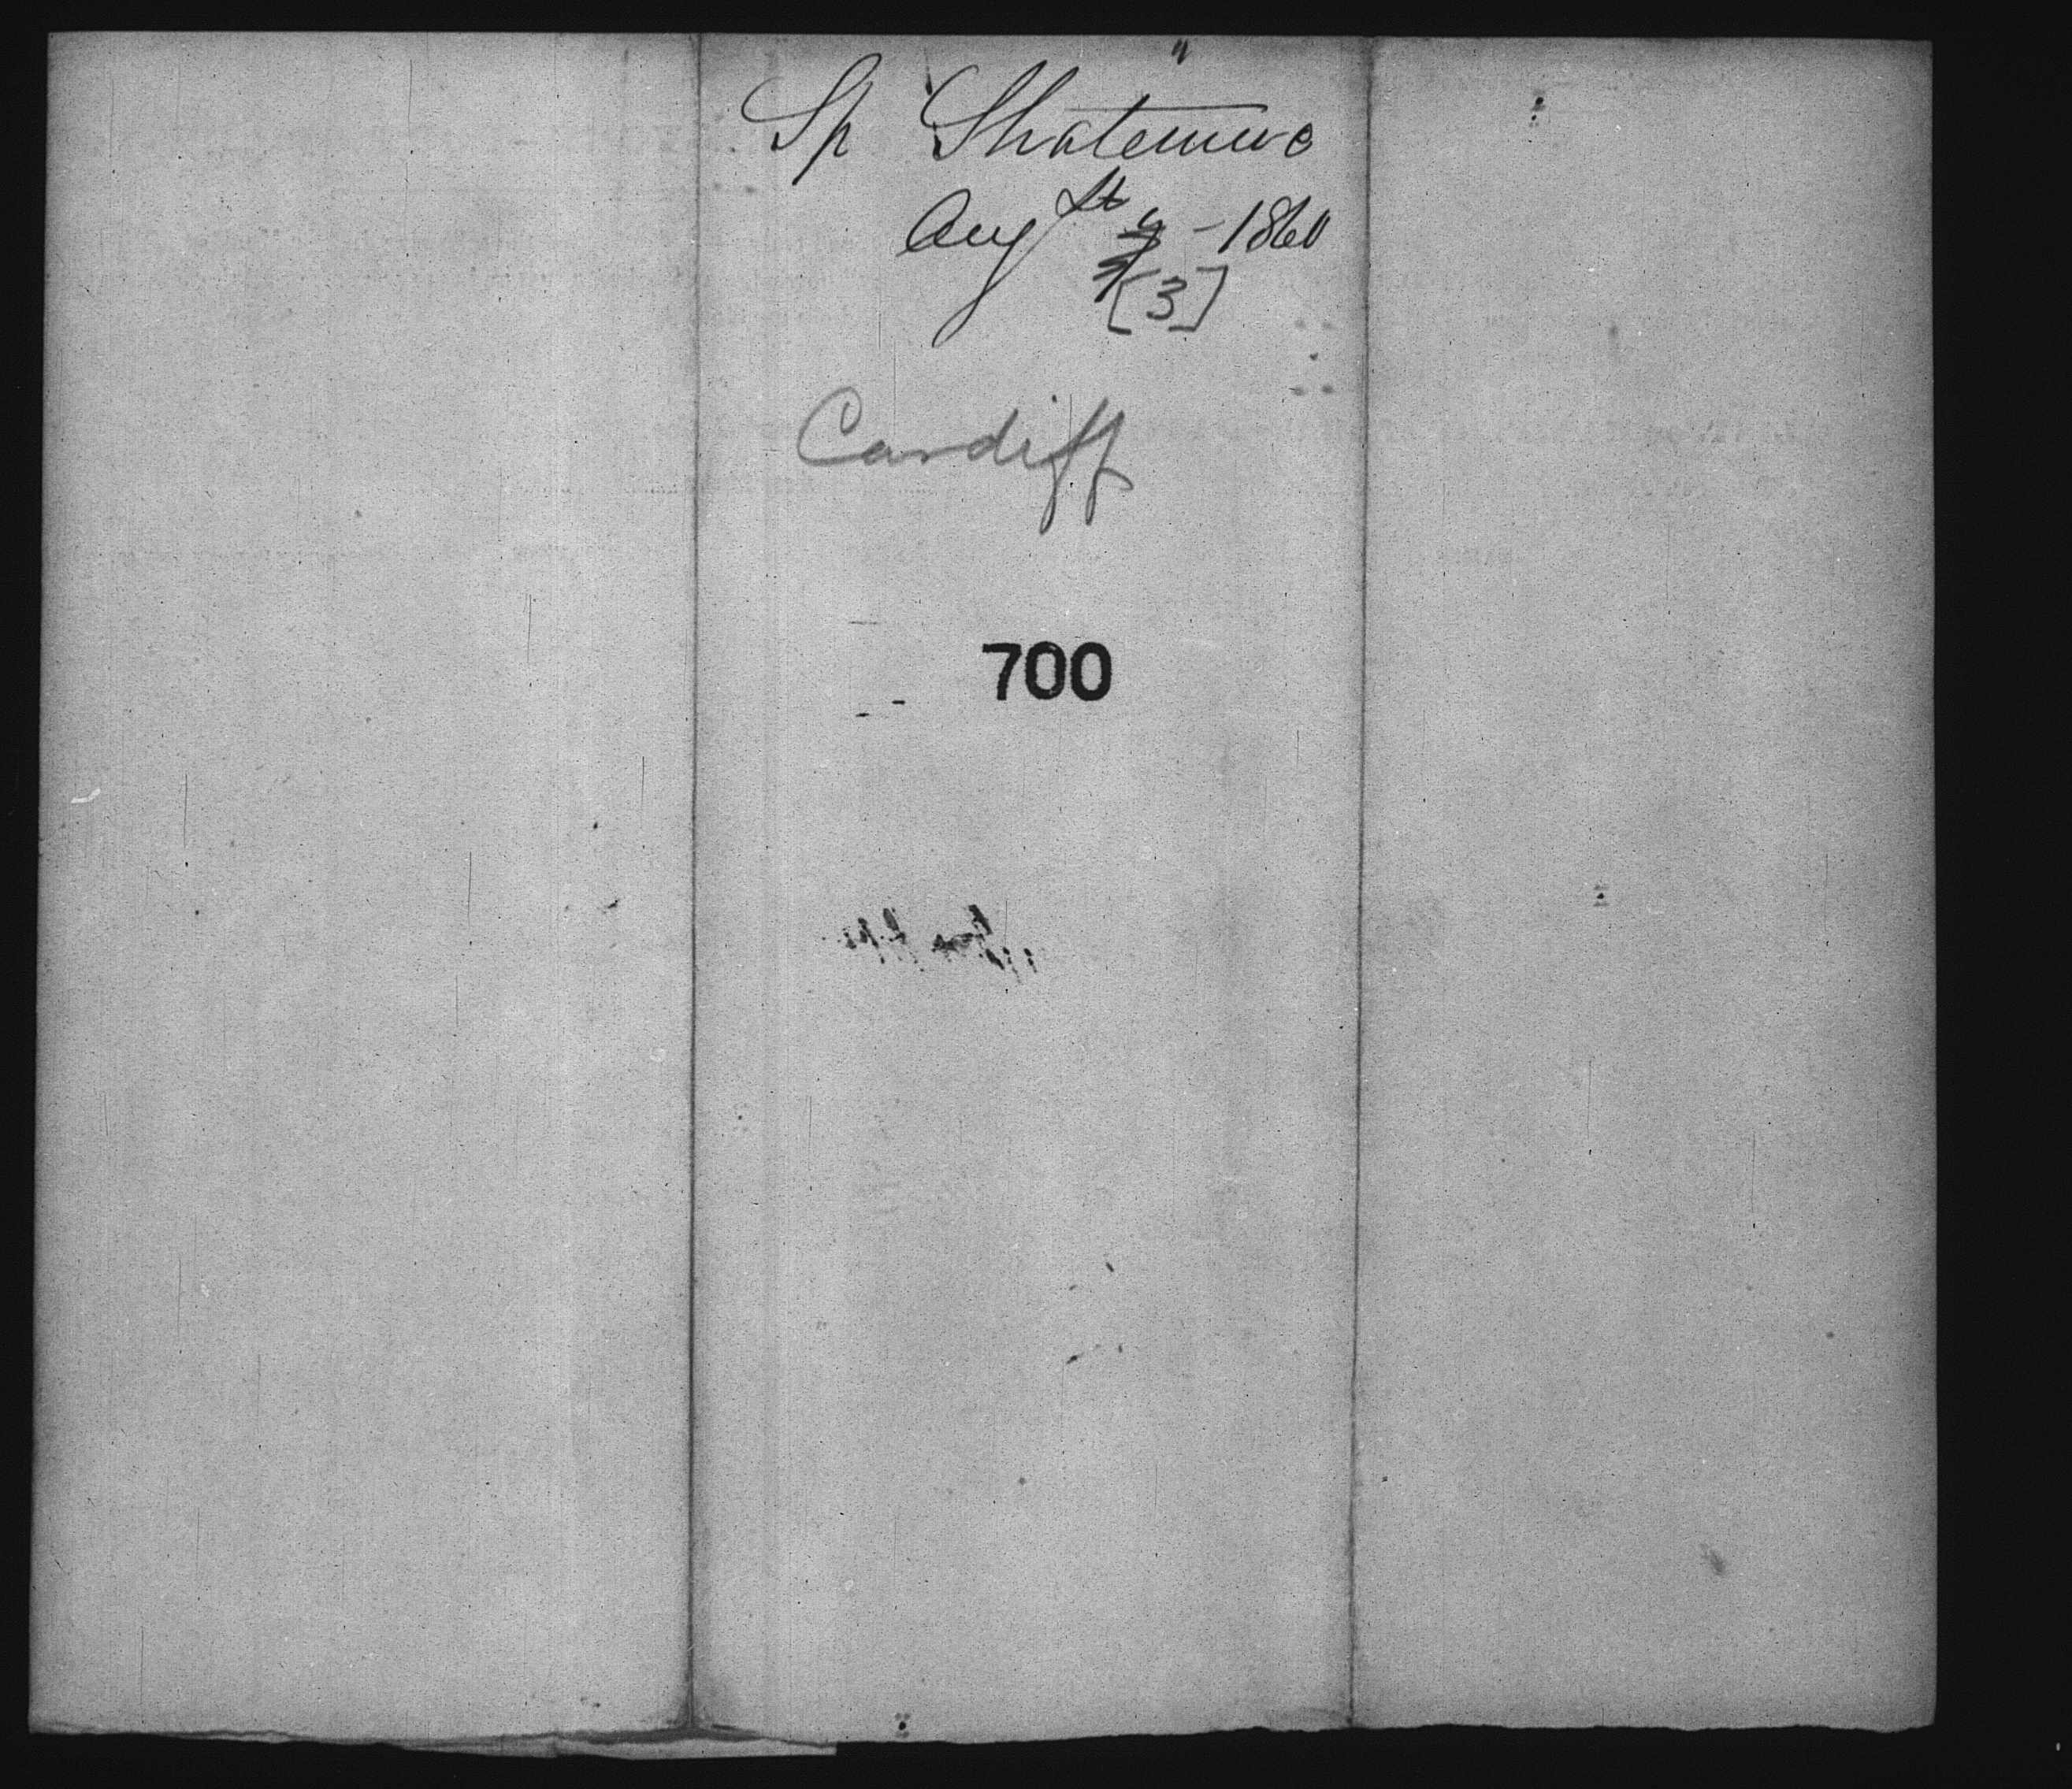 Sp Shatemuc
Augst - 1860
[3]
Cardiff
700